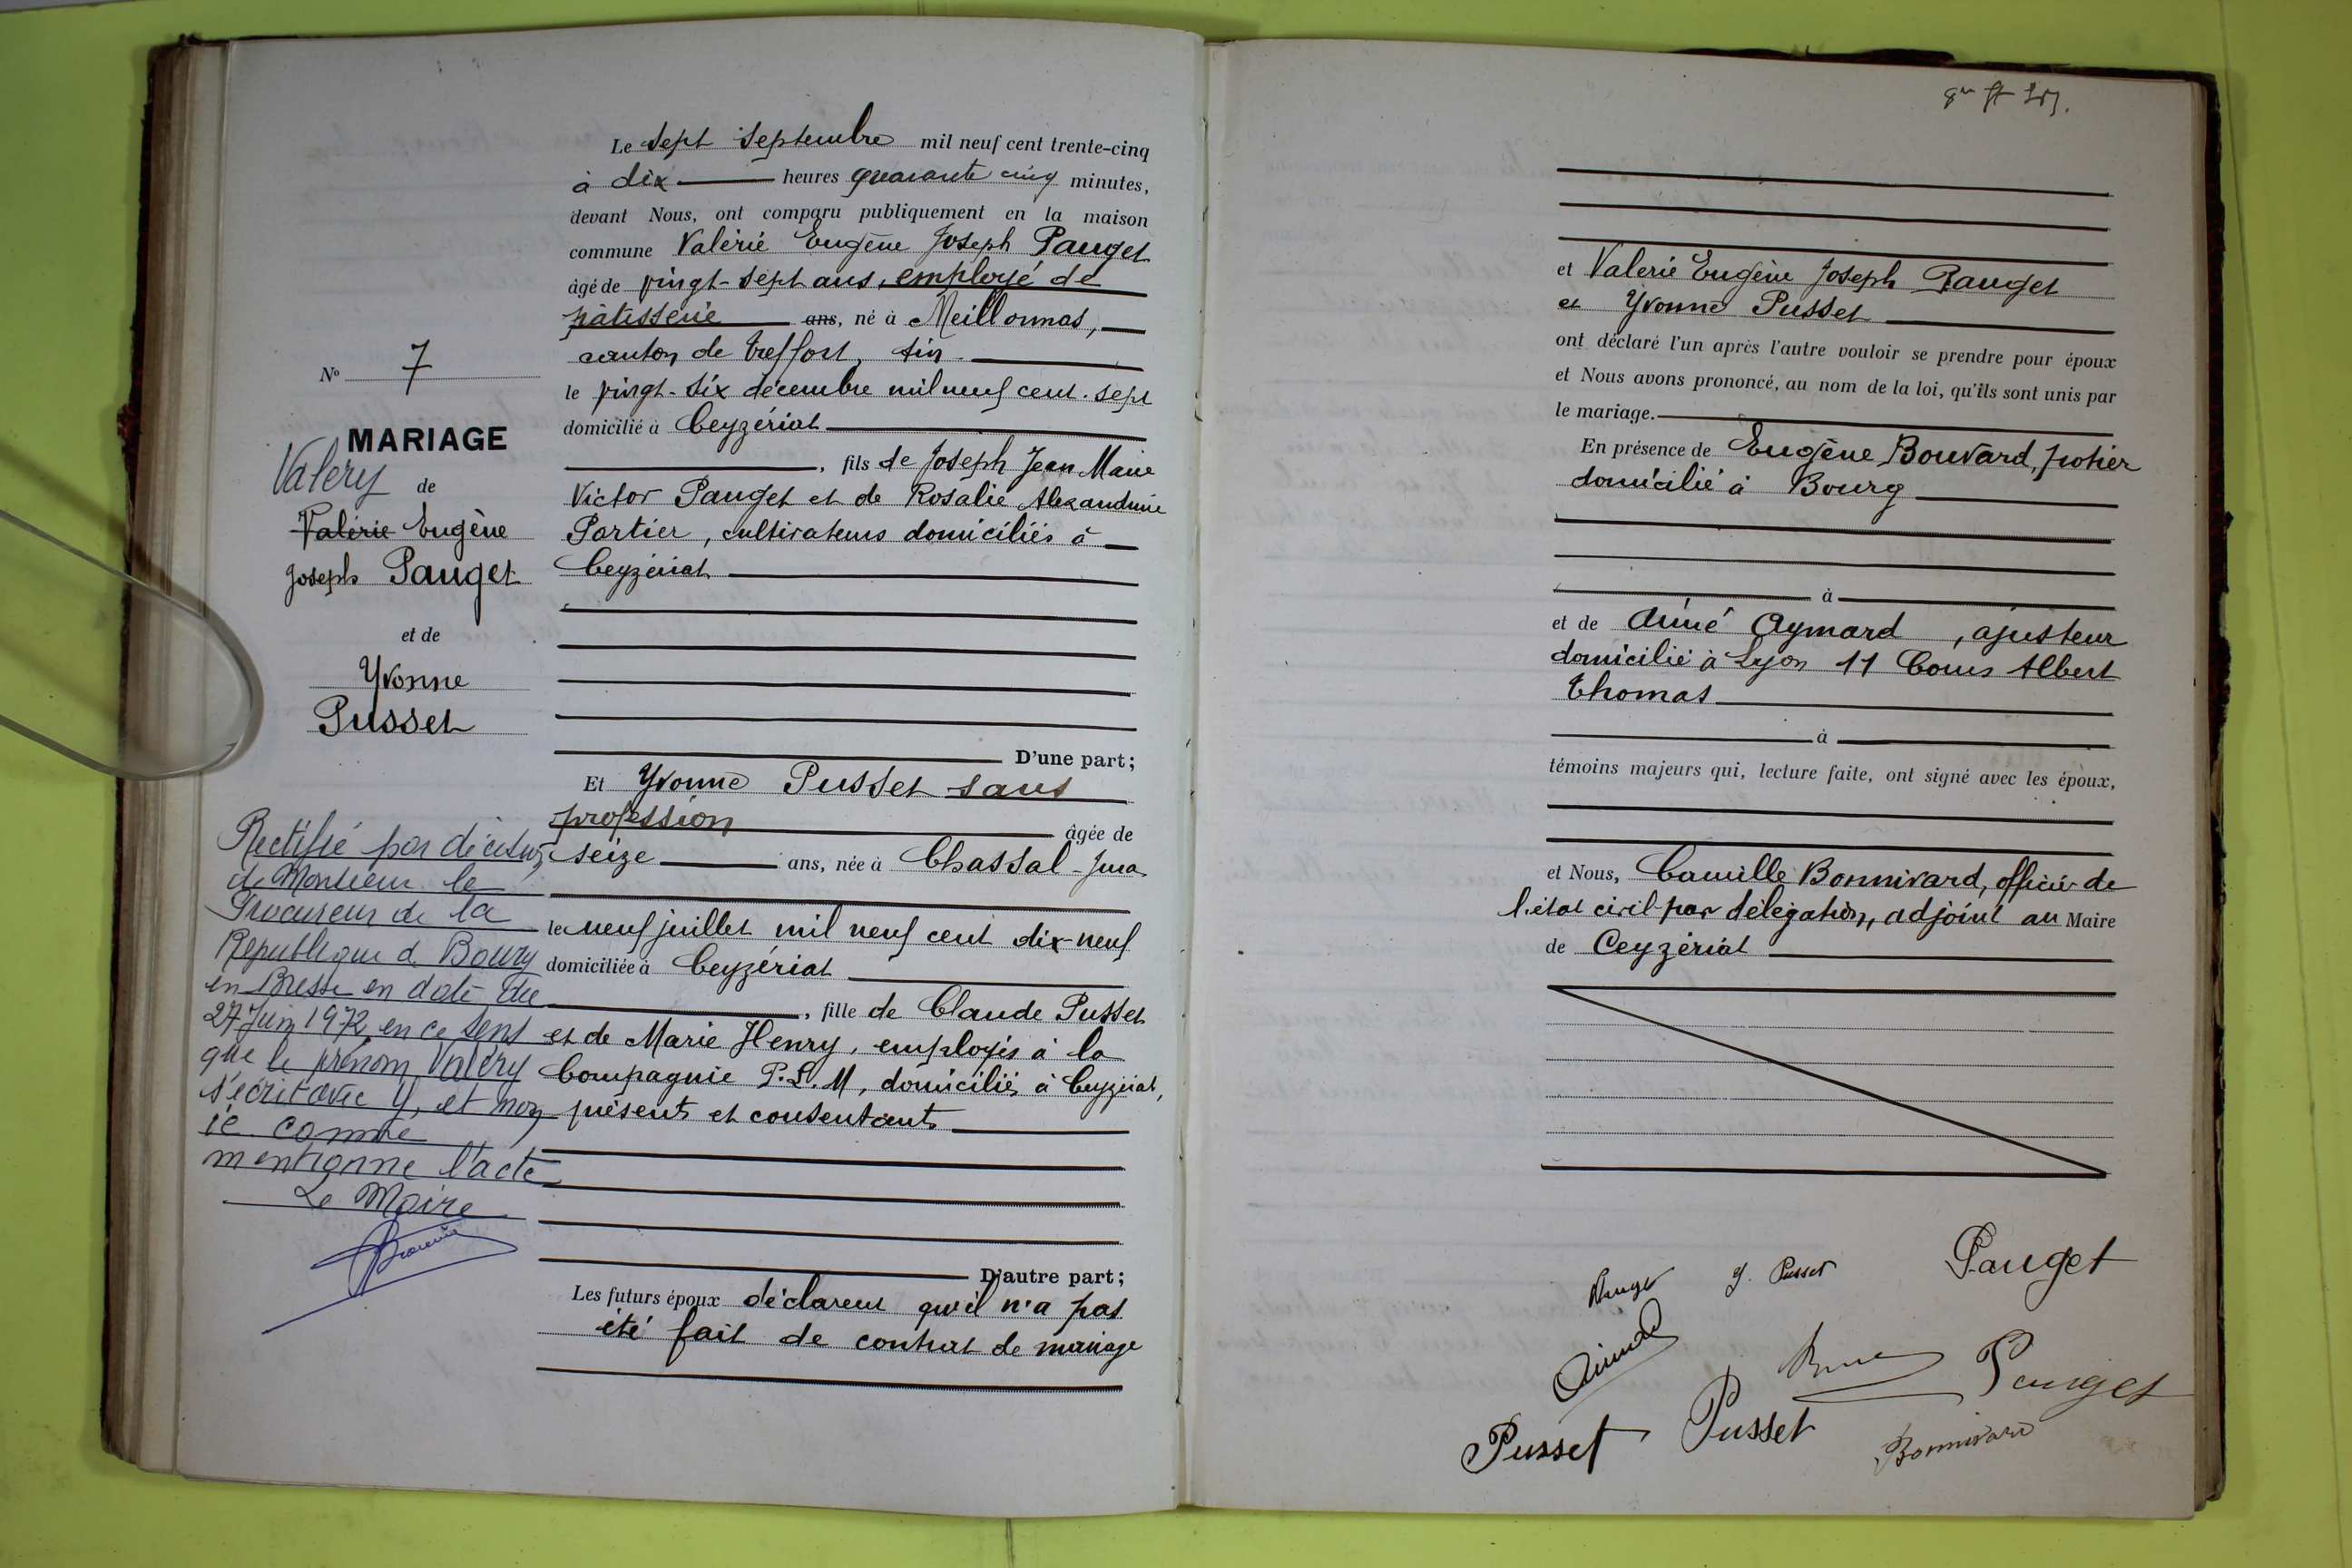 Le sept septembre mil neuf cent trente-cinq
à dix heures quarante cinq minutes,
devant Nous, ont comparu publiquement en la maison
commune Valérie Eugène Joseph Pauget
âgé de vingt-sept ans, employé de
pâtisserie ans, né à Meillonnas,
canton de Treffort, Ain
le vingt-six décembre mil neuf cent-sept
domicilié à Ceyzériat
, fils de Joseph Jean Marie
Victor Pauget et de Rosalie Alexandrine
Portier, cultivateurs domiciliés à
Ceyzériat
D'une part;
Et Yvonne Pusset sans
profession âgée de
seize ans, née à Chassal-Jura
le neuf juillet mil neuf cent dix-neuf
domiciliée à Ceyzériat
, fille de Claude Pusset
et de Marie Henry, employés à la
Compagnie P.L.M, domiciliés à Ceyzériat,
présents et consentants
D'autre part;
Les futurs époux déclarent qu'il n'a pas
été fait de contrat de mariage
No 7
MARIAGE
Valéry de
Valérie Eugène
Joseph Pauget
et de
Yvonne
Pusset
Rectifié par décision
de Monsieur le
Procureur de la
République de Bourg
en Bresse en date du
27 Juin 1972, en ce sens
que le prénom Valéry
s'écrit avec Y, et non
ie comme
mentionne l'acte
Le Maire
et Valerie Eugène Joseph Pauget
et Yvonne Pusset
ont déclaré l'un après l'autre vouloir se prendre pour époux
et Nous avons prononcé, au nom de la loi, qu'ils sont unis par
le mariage.
En présence de Eugène Bouvard, potier
domicilié à Bourg
à
et de Aimé Aymard, ajusteur
domicilié à Lyon 11 Cours Albert
Thomas
à
témoins majeurs qui, lecture faite, ont signé avec les époux,
et Nous, Camille Bonnivard, officier de
l'état civil par délégation, adjoint au Maire
de Ceyzériat
Pauget
Y. Pusset
Pauget
Pauget
Pusset
Pusset
Bonnivard